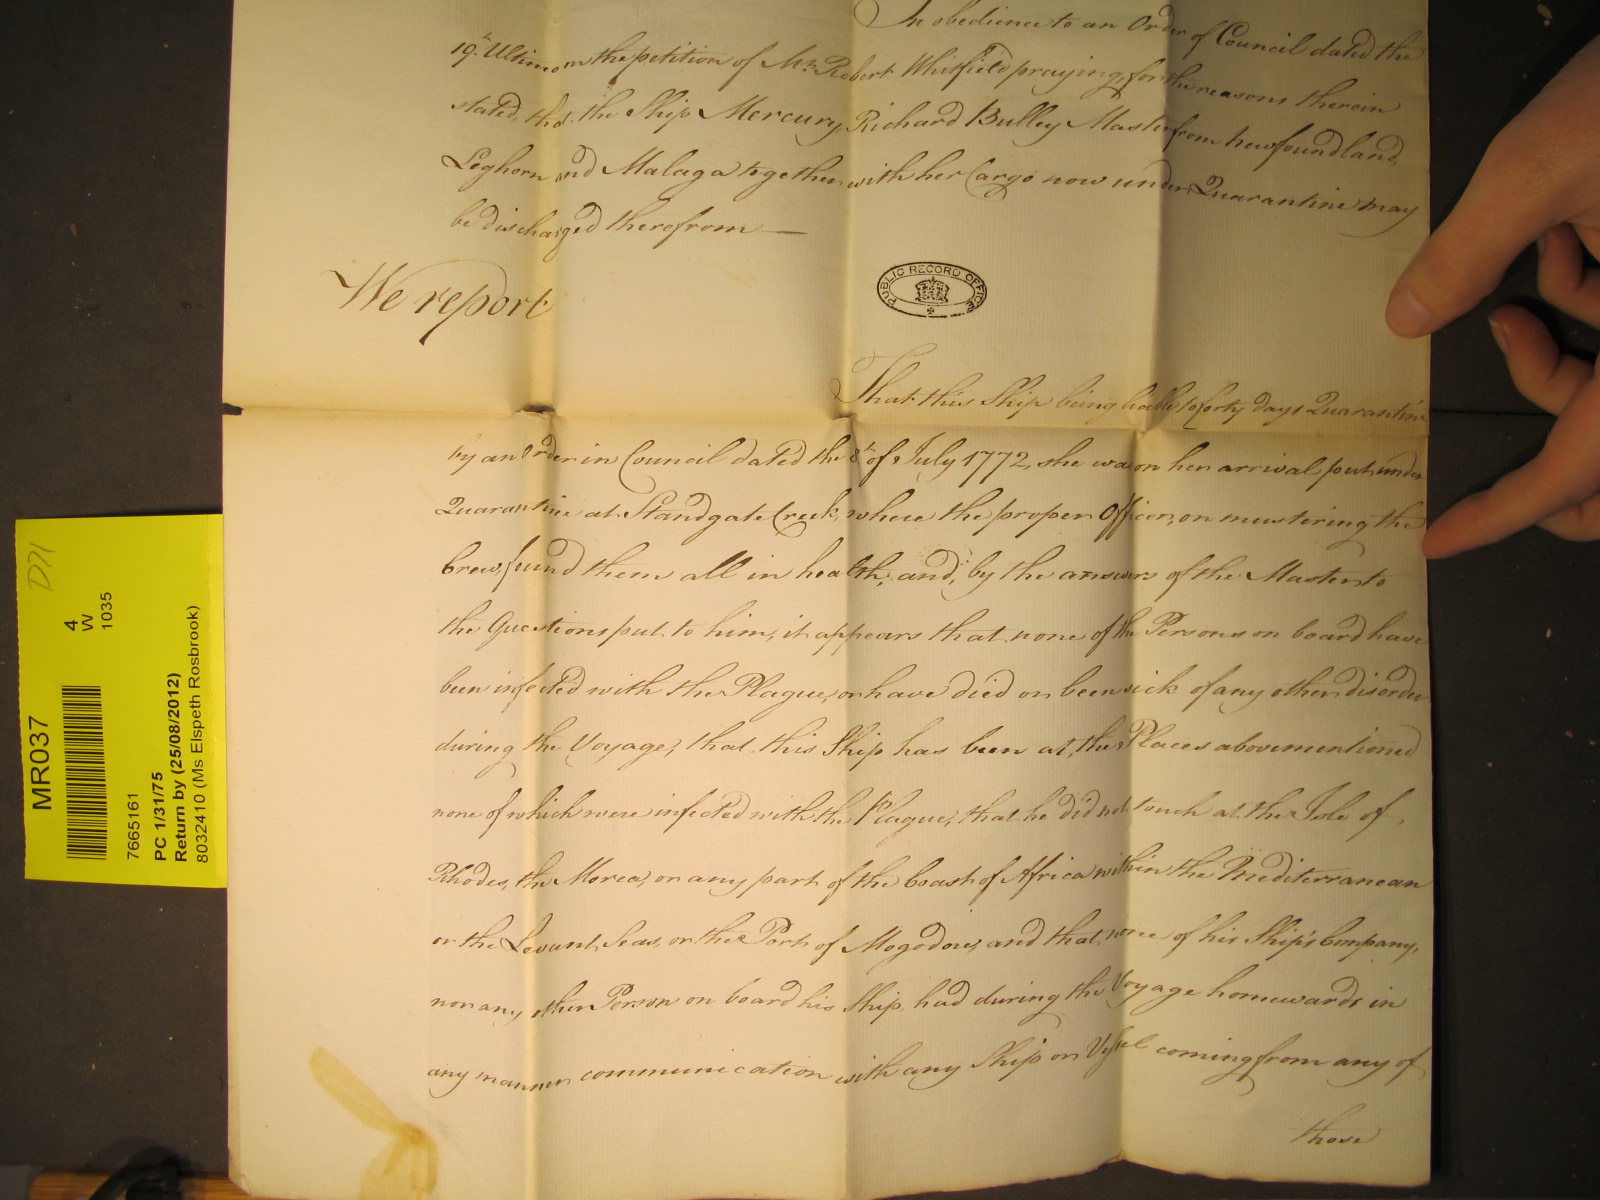 In obedience to an Order of Council dated the
19th Ultimo on the petition of Mr. Robert Whitfield praying, for the reasons therein
stated, that the Ship Mercury, Richard Bulley Master from Newfoundland,
Leghorn and Malaga together with her Cargo now under Quarantine may
be discharged therefrom
We report
PUBLIC RECORD OFFICE
That this Ship being liable to forty days Quarantine
by an Order in Council dated the 8th of July 1772, she was on her arrival put under
Quarantine at Standgate Creek, where the proper Officer, on mustering the
Crew, found them all in health, and, by the answers of the Master to
the Questions put to him, it appears that none of the Persons on board have
been infected with the Plague, or have died or been sick of any other disorder
during the Voyage, that this Ship has been at the Places abovementioned
none of which were infected with the Plague, that he did not touch at the Isle of
Rhodes, the Morea, or any part of the Coast of Africa within the Mediterranean
or the Levant Seas, or the Port of Mogodore, and that none of his Ship's Company,
nor any other Person on board his Ship, had during the Voyage homewards in
any manner communication with any Ship or Vessel coming from any of
those
D71
4
W
1035
MR037
7665161
PC 1/31/75
Return by (25/08/2012)
8032410 (Ms Elspeth Rosbrook)